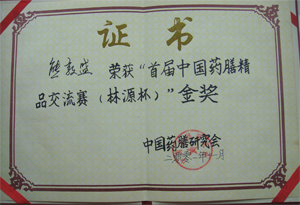 证书
熊敦盛 荣获“首届中国药膳精
品交流赛（林源杯）”金奖
中国药膳研究会